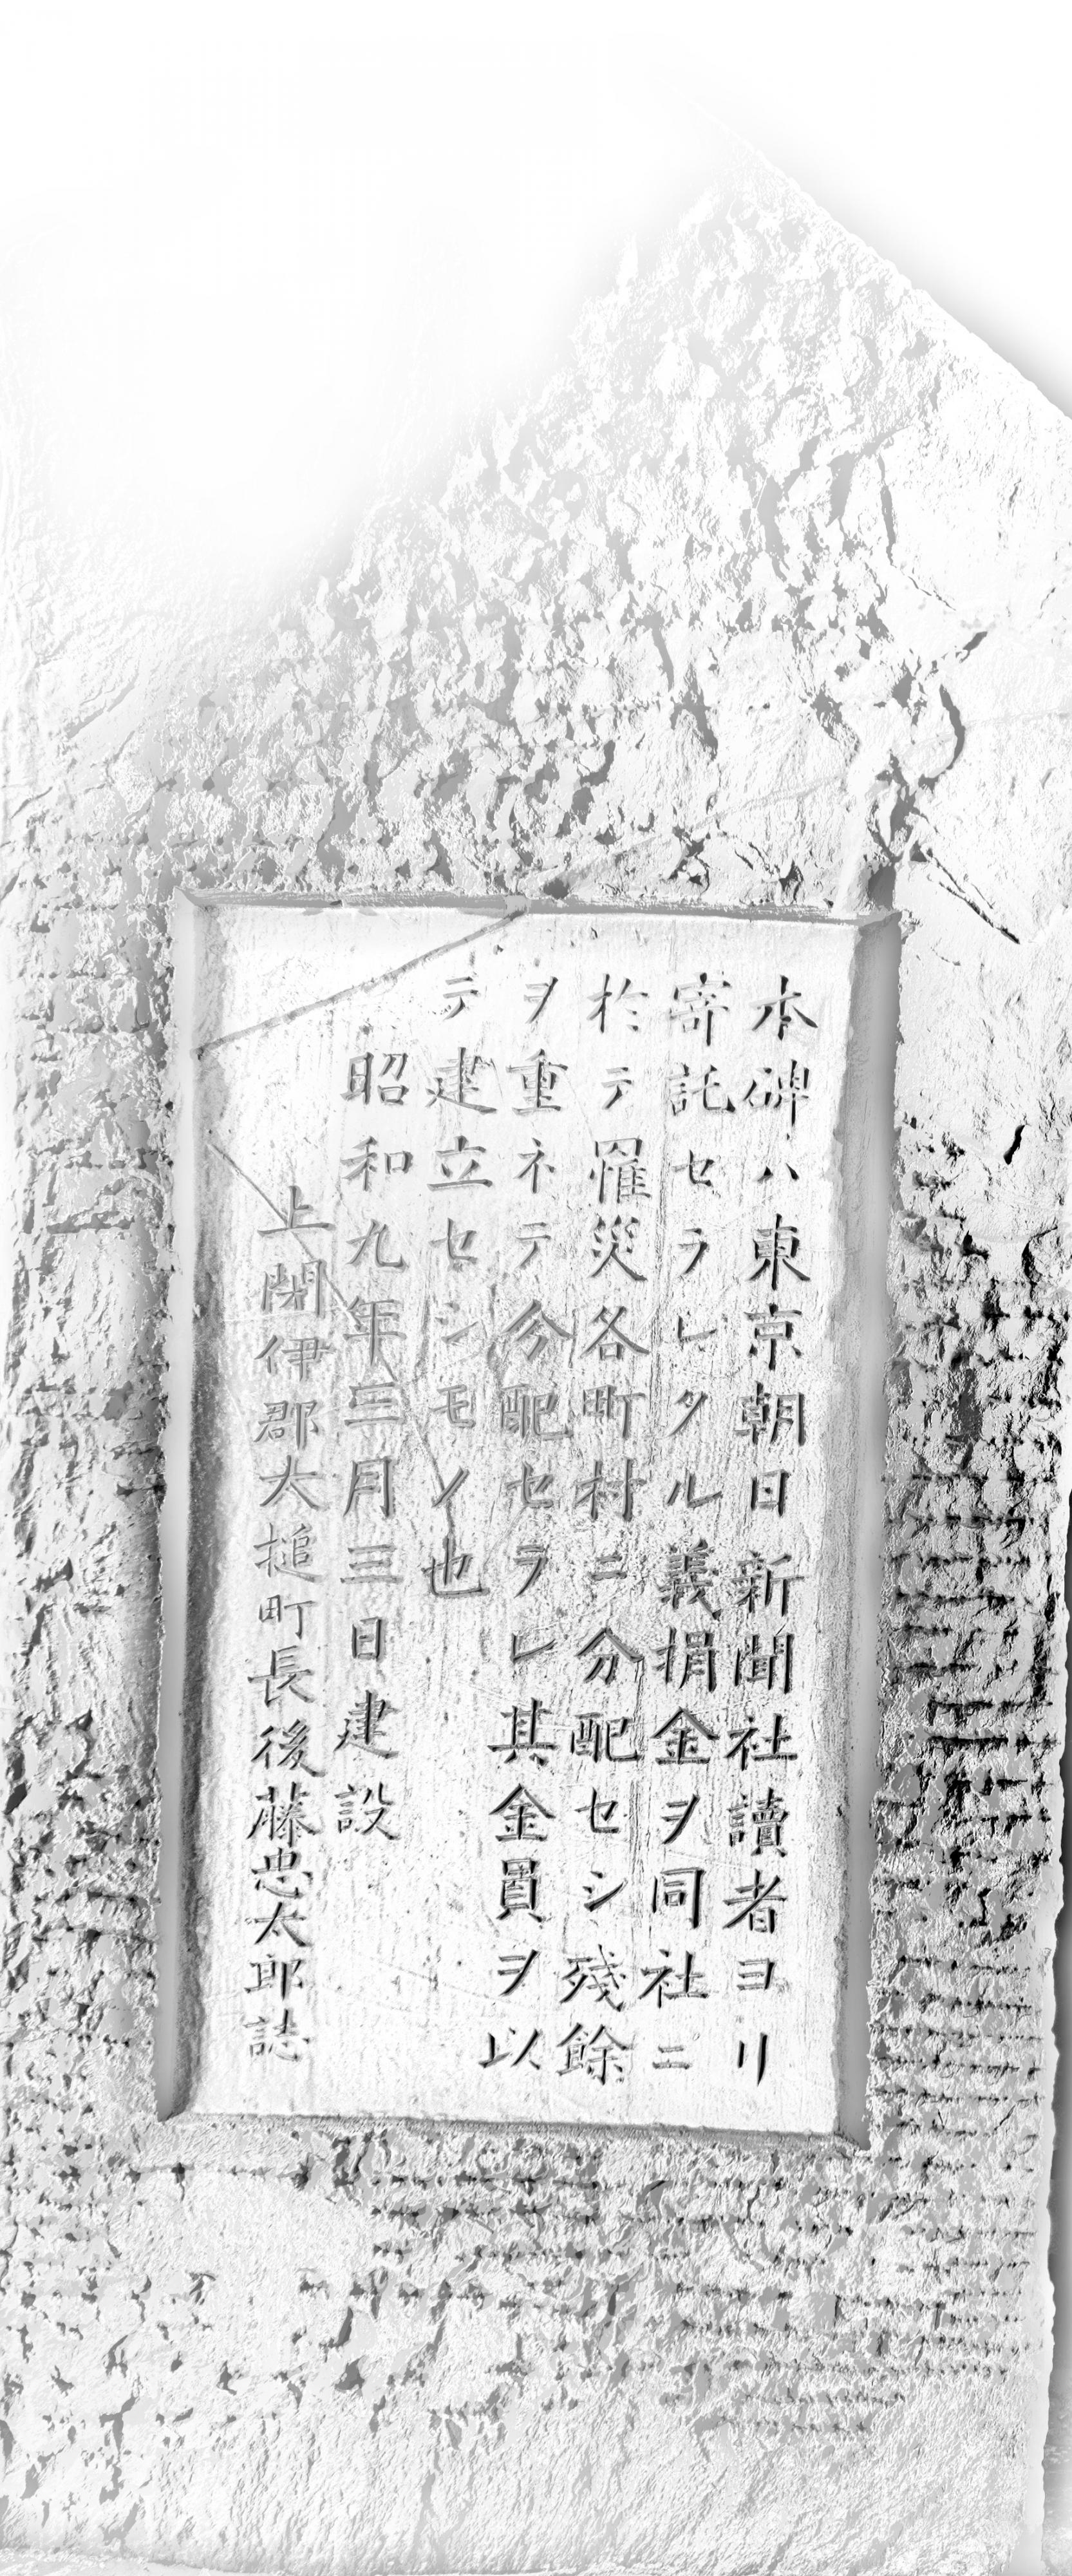 本碑ハ東京朝日新聞社讀者ヨリ
寄託セラレタル義捐金ヲ同社ニ
於テ罹災各町村ニ分配セシ殘餘
ヲ重ネテ分配セラレ其金員ヲ以
テ建立セシモノ也
昭和九年三月三日建設
上閉伊郡大槌町長後藤忠太郎誌